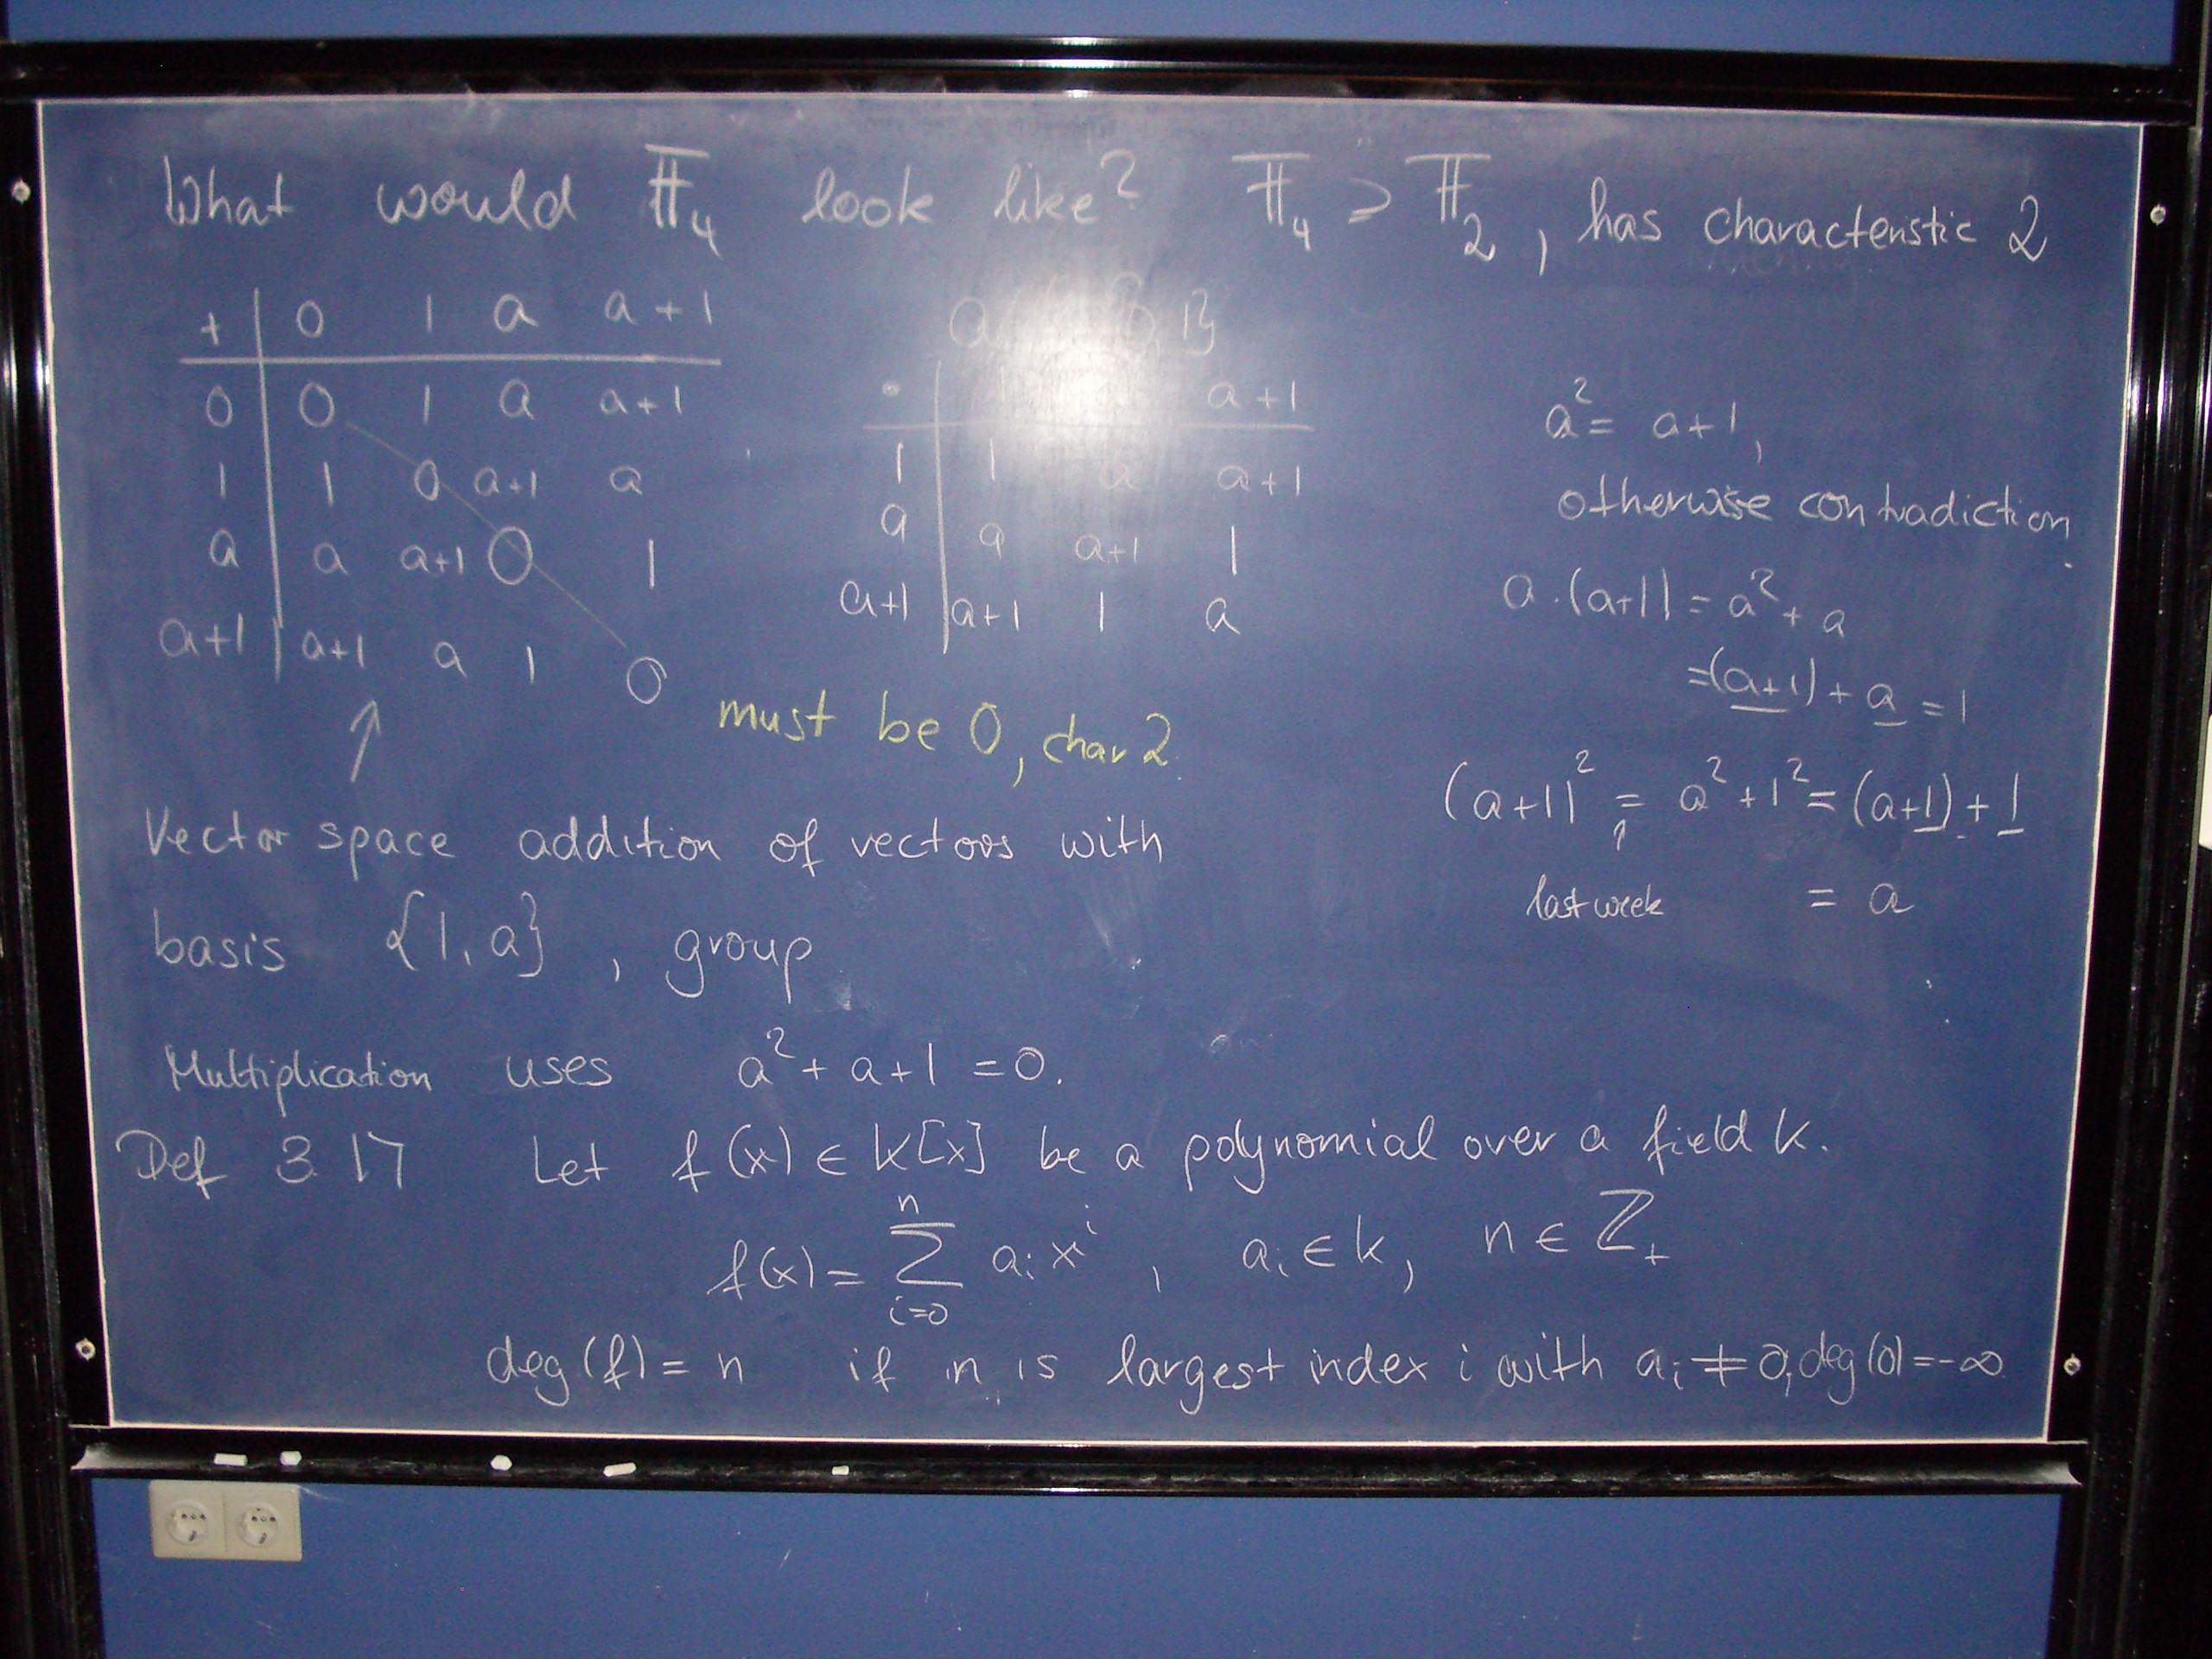 What would 𝔽₄ look like? 𝔽₄ ⊃ 𝔽₂, has characteristic 2
+ | 0 1 a a+1
0 | 0 1 a a+1
1 | 1 0 a+1 a
a | a a+1 0 1
a+1 | a+1 a 1 0
must be 0, char 2.
a 1}
· | 1 a+1
1 | 1 a a+1
a | a a+1 1
a+1 | a+1 1 a
a² = a+1,
otherwise contradiction.
a·(a+1) = a² + a
=(a+1) + a = 1
(a+1)² = a² + 1² = (a+1) + 1
↑
last week = a
↑
Vector space addition of vectors with
basis {1, a}, group
Multiplication uses a² + a + 1 = 0.
Def 3.17 Let f(x) ∈ k[x] be a polynomial over a field k.
f(x) = ∑ᵢ₌₀ⁿ aᵢ xⁱ, aᵢ ∈ k, n ∈ ℤ₊
deg(f) = n if n is largest index i with aᵢ ≠ 0, deg(0) = -∞